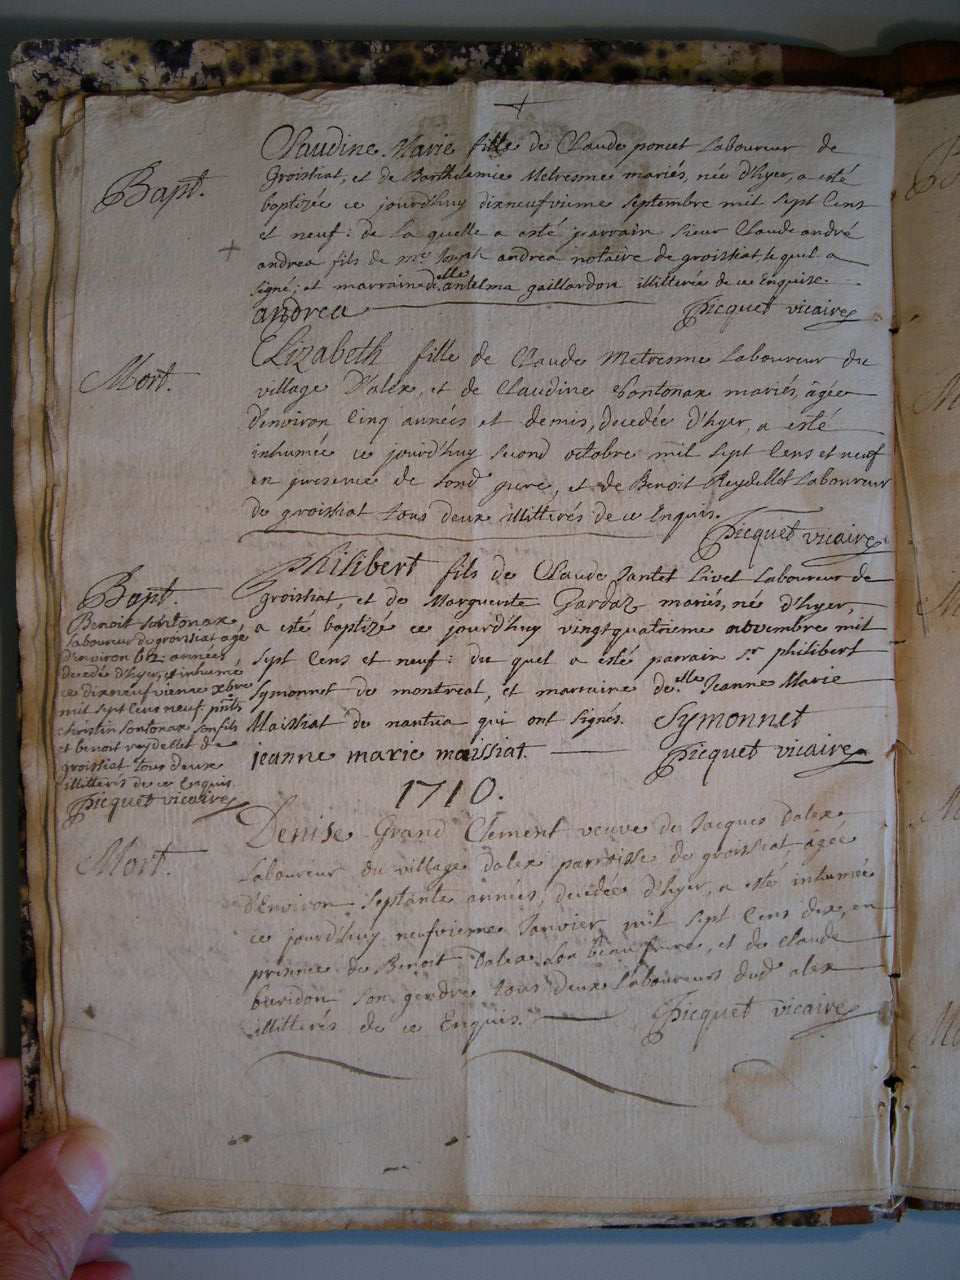 Bapt.
Claudine Marie fille de Claude poncet Laboureur de
Groissiat, et de Barthelemie Metresme mariés, née d'hyer, a esté
baptizée ce jourd'huy dixneufvieme septembre mil sept Cens
et neuf : de la quelle a esté parrain sieur Claude andré
andrea fils de me Joseph andrea notaire de groissiat, lequel a
signé ; et marraine delle antelma gaillardon illitterée de ce Enquise.
andrea Picquet vicaire
Mort.
Elizabeth fille de Claude Metresme Laboureur du
village D'alex, et de Claudine Sontonax mariés, âgée
d'environ Cinq années et demis, decedée d'hyer, a esté
inhumée ce jourd'huy second octobre mil sept Cens et neuf
en presence de sond pere, et de Benoit Reydellet Laboureur
de groissiat tous deux illitterés de ce Enquis.
Picquet vicaire
Bapt.
Philibert fils de Claude Jantet Livet Laboureur de
groissiat, et de Marguerite Gardaz mariés, né d'hyer,
a esté baptizé ce jourd'huy vingtquatrieme novembre mil
sept Cens et neuf : du quel a esté parrain sr philibert
Symonnet de montreal, et marraine delle Jeanne Marie
Maissiat de nantua qui ont signés. Symonnet
jeanne marie maissiat. Picquet vicaire
Benoit sontonax,
Laboureur de groissiat agé
d'environ années,
decedé d'hyer, est inhumé
ce dixneufvieme xbre
mil sept Cens neuf pnts
christin sontonax son fils
et benoit reydellet de
groissiat tous deux
illitterés de ce Enquis.
Picquet vicaire
1710.
Mort.
Denise Grand Clement veuve de Jacques Dalex
Laboureur du village dalex parroisse de groissiat, âgée
d'Environ septante années, decedée d'hyer, a esté inhumée
ce jourd'huy neufvieme Janvier mil sept Cens dix, en
presence de Benoit Dalex son beaufrere, et de Claude
buridon son gendre tous deux Laboureurs dud alex
illitterés de ce Enquis. Picquet vicaire